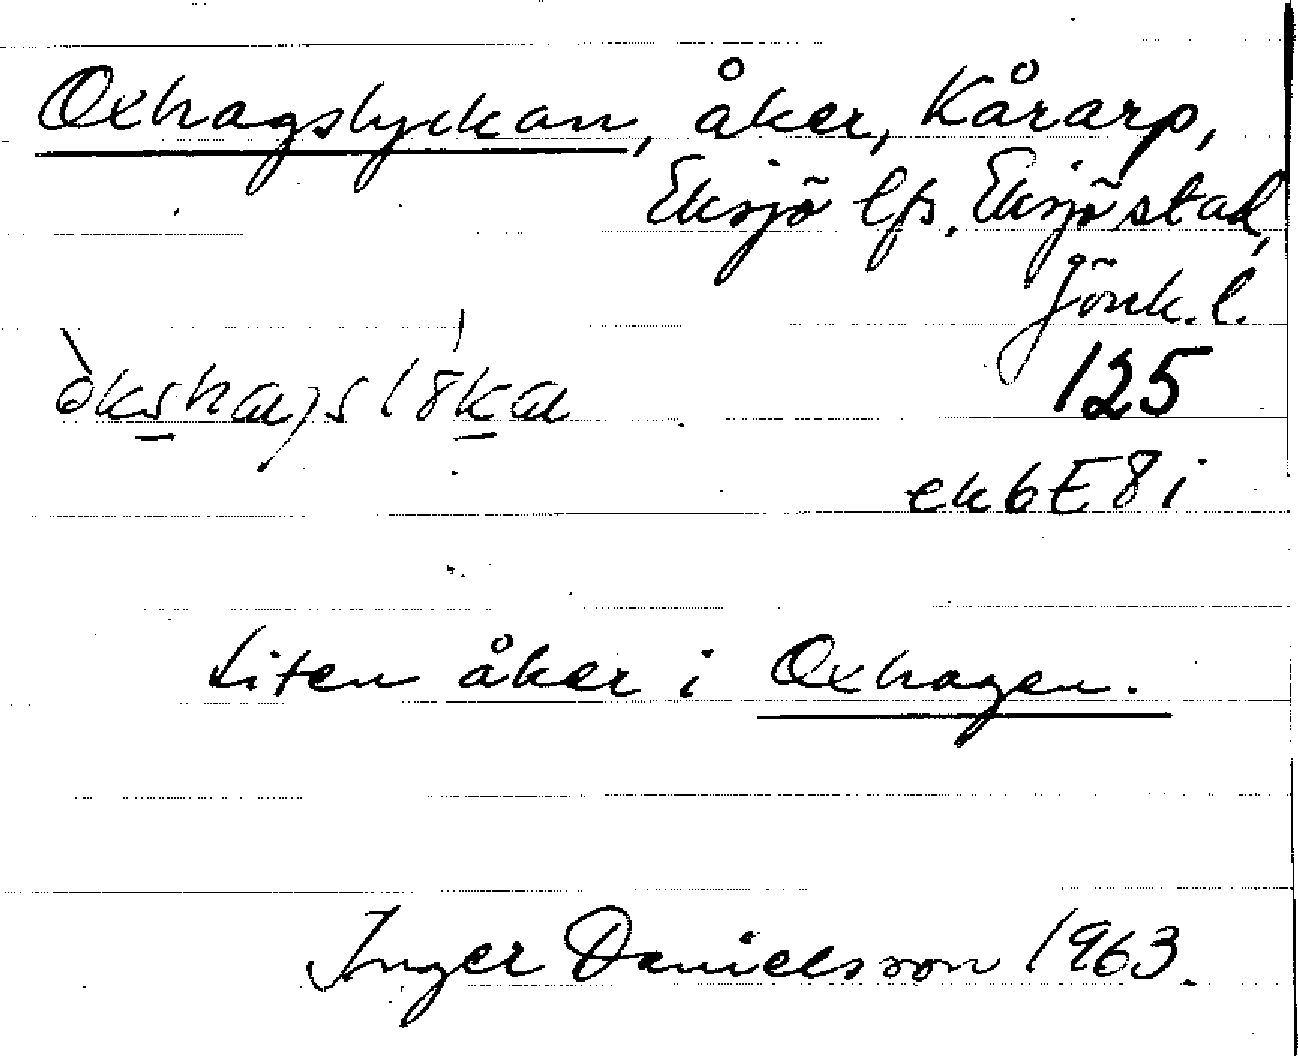 Oxhagslyckan, åker, Kårarp,
Eksjö lfs. Eksjö stad,
Jönk. l.
òkshagslö́ka
125
ek 6E8i
Liten åker i Oxhagen.
Inger Danielsson 1963.